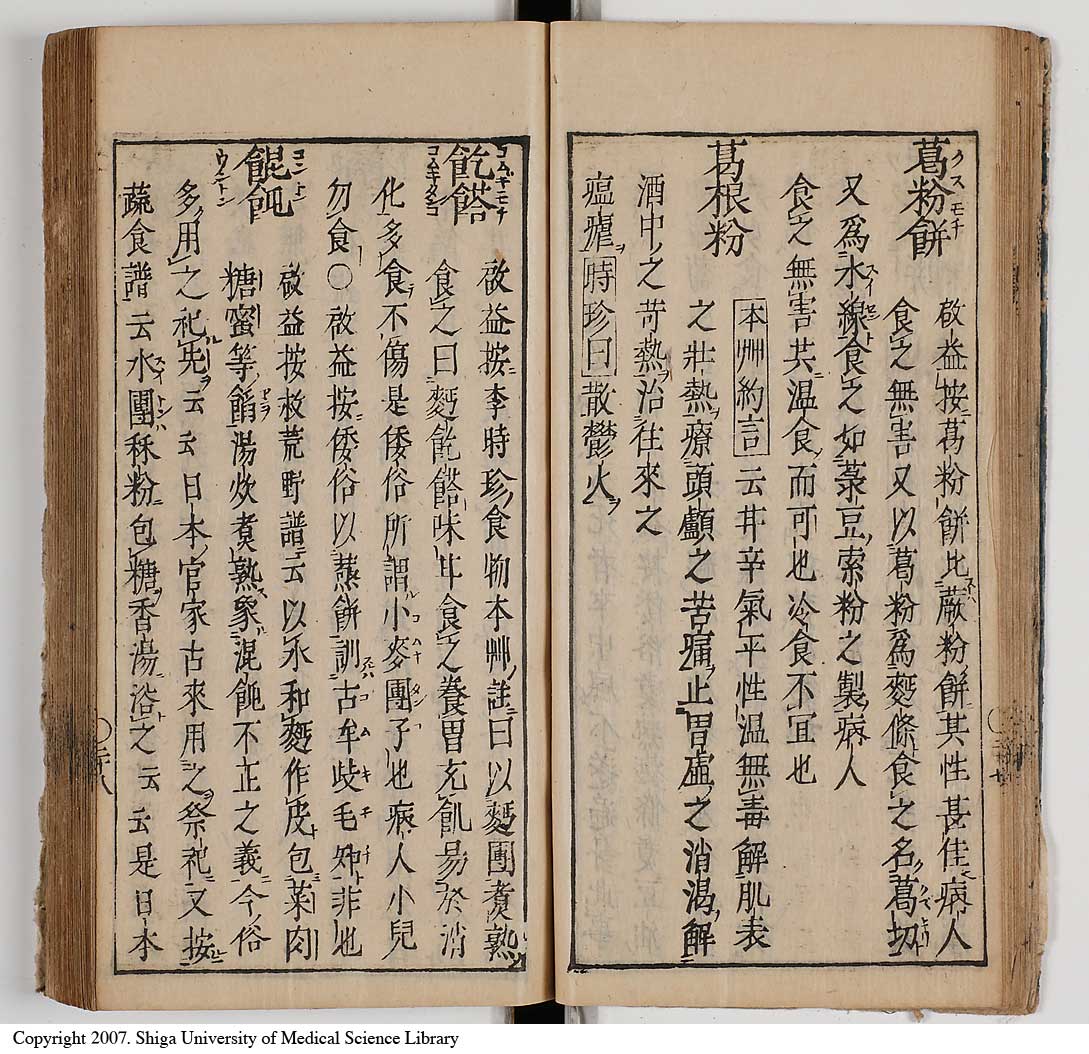 葛粉餅 啓益按葛粉餅比蕨粉餅其性甚佳病人
食之無害又以葛粉爲麪條食之名葛切
又爲水線食之如菉豆索粉之製病人
食之無害共温食而可也冷食不宜也
葛根粉 本艸約言云甘辛氣平性温無毒解肌表
之壯熱療頭顱之苦痛止胃虚之消渇解
酒中之苛熱治往來之
瘟瘧時珍曰散鬱火
啓益按李時珍食物本艸註曰以麪團煮熟
食之曰麪味甘食之養胃充飢易消
化多食不傷是倭俗所謂小麥團子也病人小兒
勿食○啓益按倭俗以蒸餅訓古牟岐毛知非也
餛飩 啓益按救荒野譜云以水和麪作皮包菜肉
糖蜜等餡湯炊煮熟象混飩不正之義今俗
多用之祀先云云日本官家古來用之祭祀又按
蔬食譜云水團秫粉包糖香湯浴之云云是日本
Copyright 2007. Shiga University of Medical Science Library